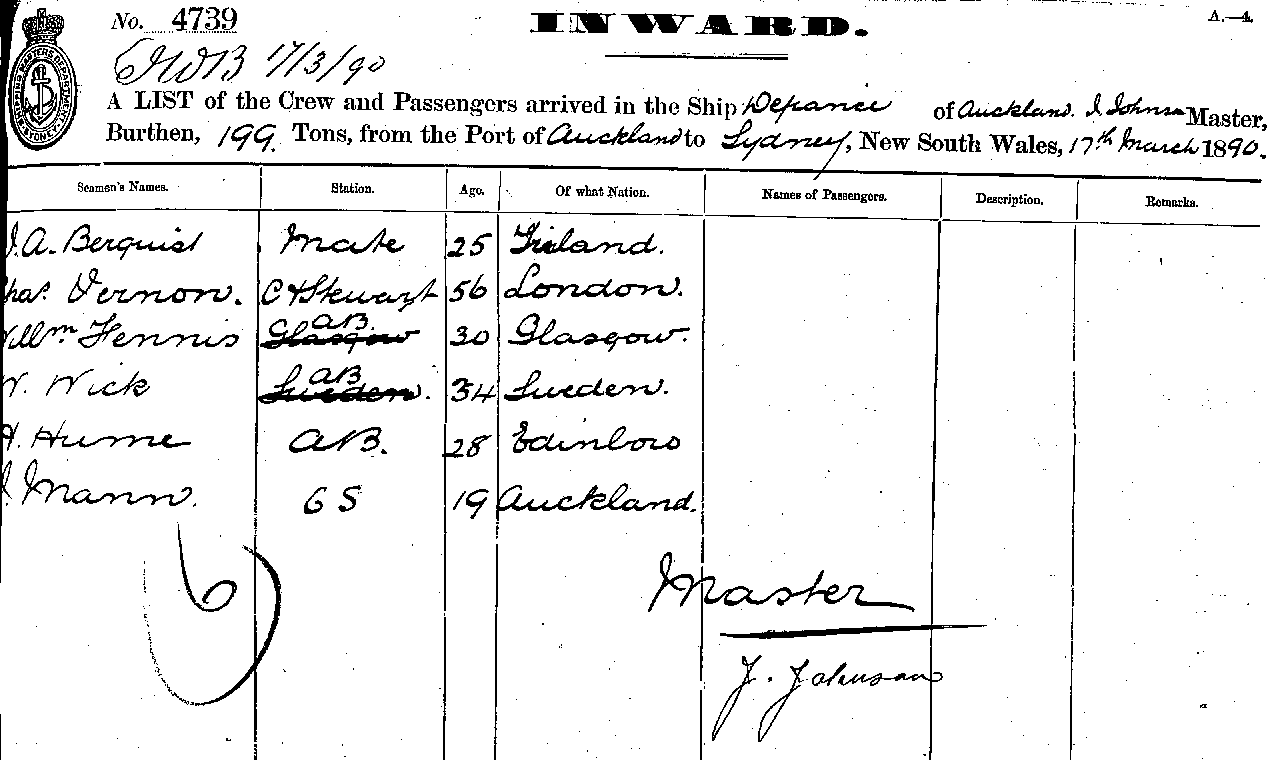 No. 4739
INWARD.
A.—4.
17/3/90
A LIST of the Crew and Passengers arrived in the Ship Defiance of Auckland. J Johnson Master,
Burthen, 199 Tons, from the Port of Auckland to Sydney, New South Wales, 17th March 1890.
Seamen's Names. Station. Age. Of what Nation. Names of Passengers. Description. Remarks.
J. A. Berquist Mate 25 Finland.
Chas. Vernon. C & Stewart 56 London.
Willm Fennis Glasgow AB 30 Glasgow.
W. Wick Sweden AB 34 Sweden.
H. Hume AB. 28 Edinboro
J. Mann. 19 Auckland.
6
Master
J. Johnson